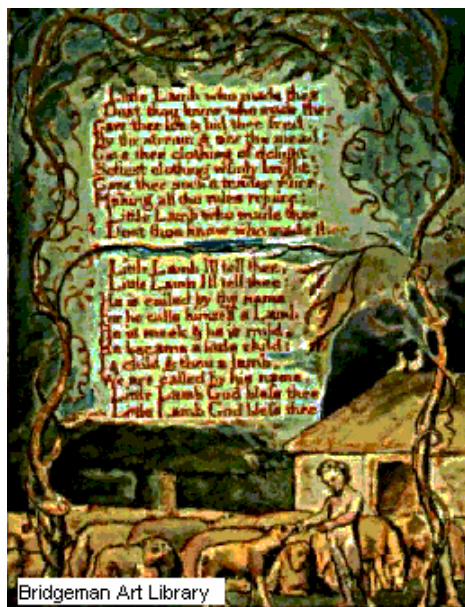 Little Lamb who made thee
Dost thou know who made thee
Gave thee life & bid thee feed.
By the stream & o'er the mead;
Gave thee clothing of delight,
Softest clothing wooly bright;
Gave thee such a tender voice,
Making all the vales rejoice:
Little Lamb who made thee
Dost thou know who made thee
Little Lamb I'll tell thee,
Little Lamb I'll tell thee;
He is called by thy name,
For he calls himself a Lamb:
He is meek & he is mild,
He became a little child:
I a child & thou a lamb,
We are called by his name.
Little Lamb God bless thee
Little Lamb God bless thee
Bridgeman Art Library